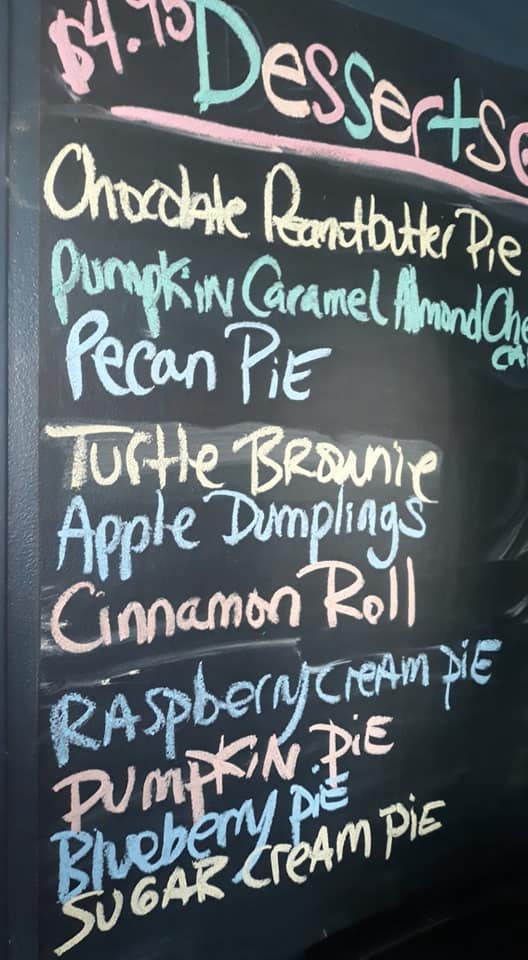 $4.95 Desserts
Chocolate Peanutbutter Pie
Pumpkin Caramel Almond Che
ca
Pecan PiE
Turtle Brownie
Apple Dumplings
Cinnamon Roll
RAspberry cream piE
PumpKiN piE
Blueberry piE
SUGAR cream piE